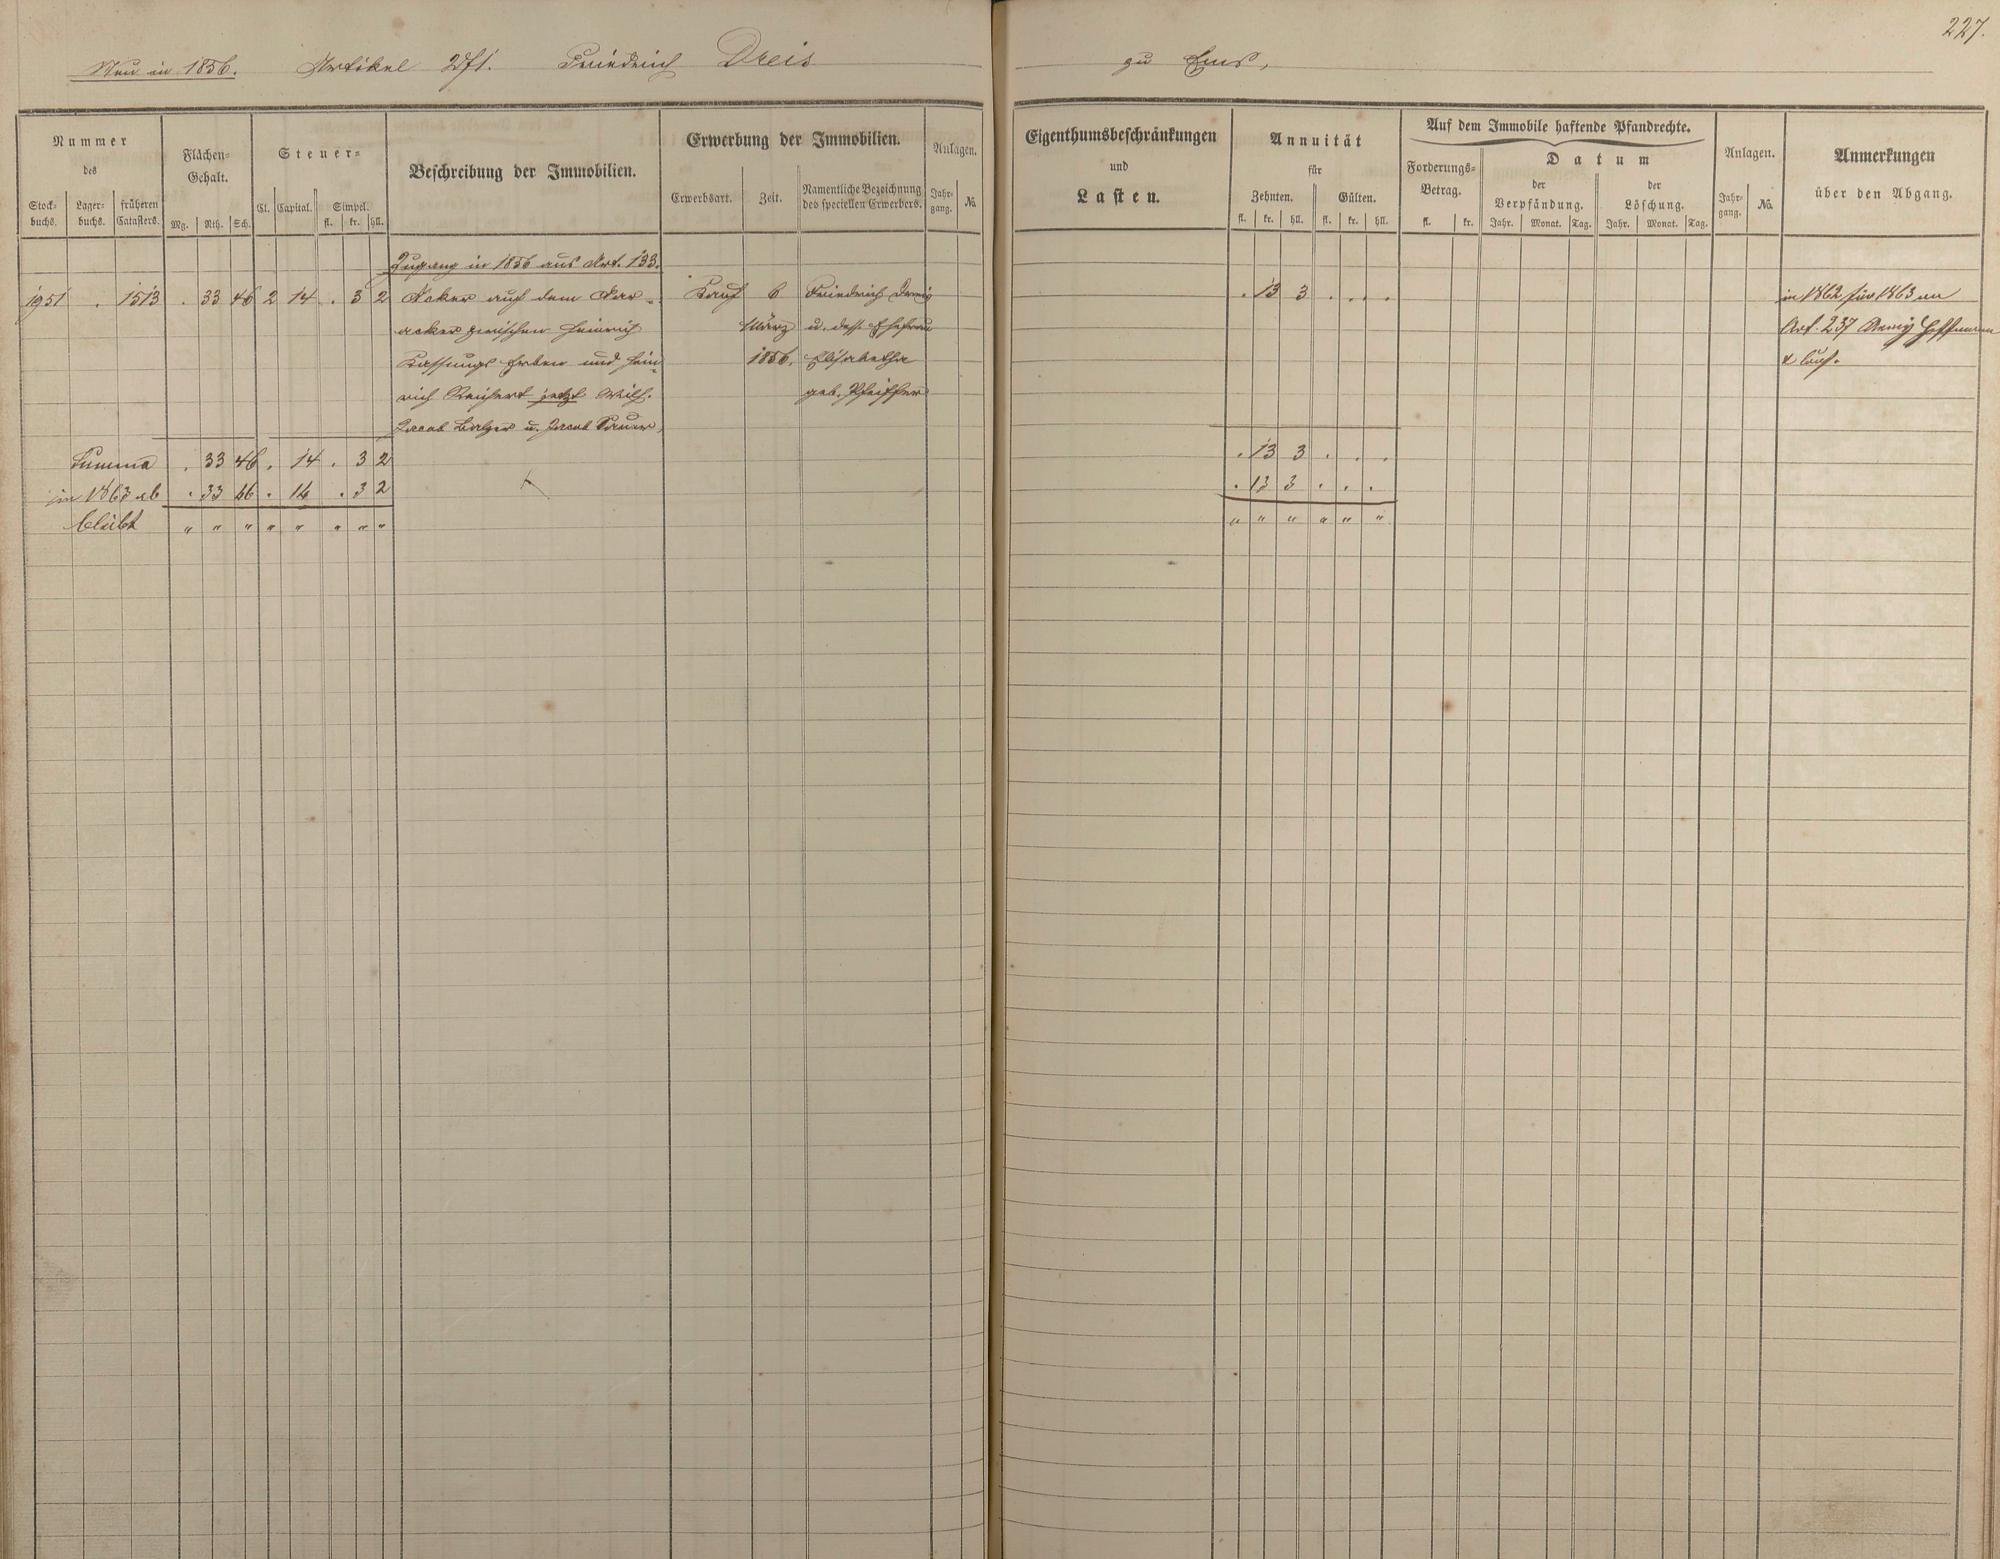 227.
Neu in 1856. Artikel 271. Friedrich Dreis zu Ems,
Nummer
des
Stock-
buchs.
Lager-
buchs.
früheren
Catasters.
Flächen-
Gehalt.
Mg. Rth. Sch.
Steuer-
Cl. Capital. Simpel.
fl. kr. hll.
Beschreibung der Immobilien.
Erwerbung der Immobilien.
Erwerbsart. Zeit. Namentliche Bezeichnung
des speciellen Erwerbers.
Anlagen.
Jahr-
gang. No.
Eigenthumsbeschränkungen
und
Lasten.
Annuität
für
Zehnten. Gülten.
fl. kr. hll. fl. kr. hll.
Auf dem Immobile haftende Pfandrechte.
Forderungs-
Betrag.
fl. kr.
Datum
der
Verpfändung.
Jahr. Monat. Tag.
der
Löschung.
Jahr. Monat. Tag.
Anlagen.
Jahr-
gang. No.
Anmerkungen
über den Abgang.
Zugang in 1856 aus Art. 133.
1951 . 1513 . 33 46 2 14 . 3 2 Acker auf dem Kauf 6 Friedrich Dreis . 13 3 . . . in 1862 für 1863 an
acker zwischen Heinrich März u. dess. Ehefrau Art. 237 Remy Hoffmann
Erben und Hein- 1856. Elisabetha & Cons.
rich Reichert jetzt Wilh. geb. Pfeiffer
Jacob Balzer u. Jacob Sauer,
Summa . 33 46 . 14 . 3 2 . 13 3 . . .
in 1863 ab . 33 46 . 14 . 3 2 . 13 3 . . .
bleibt " " " " " " " " " " " " " "